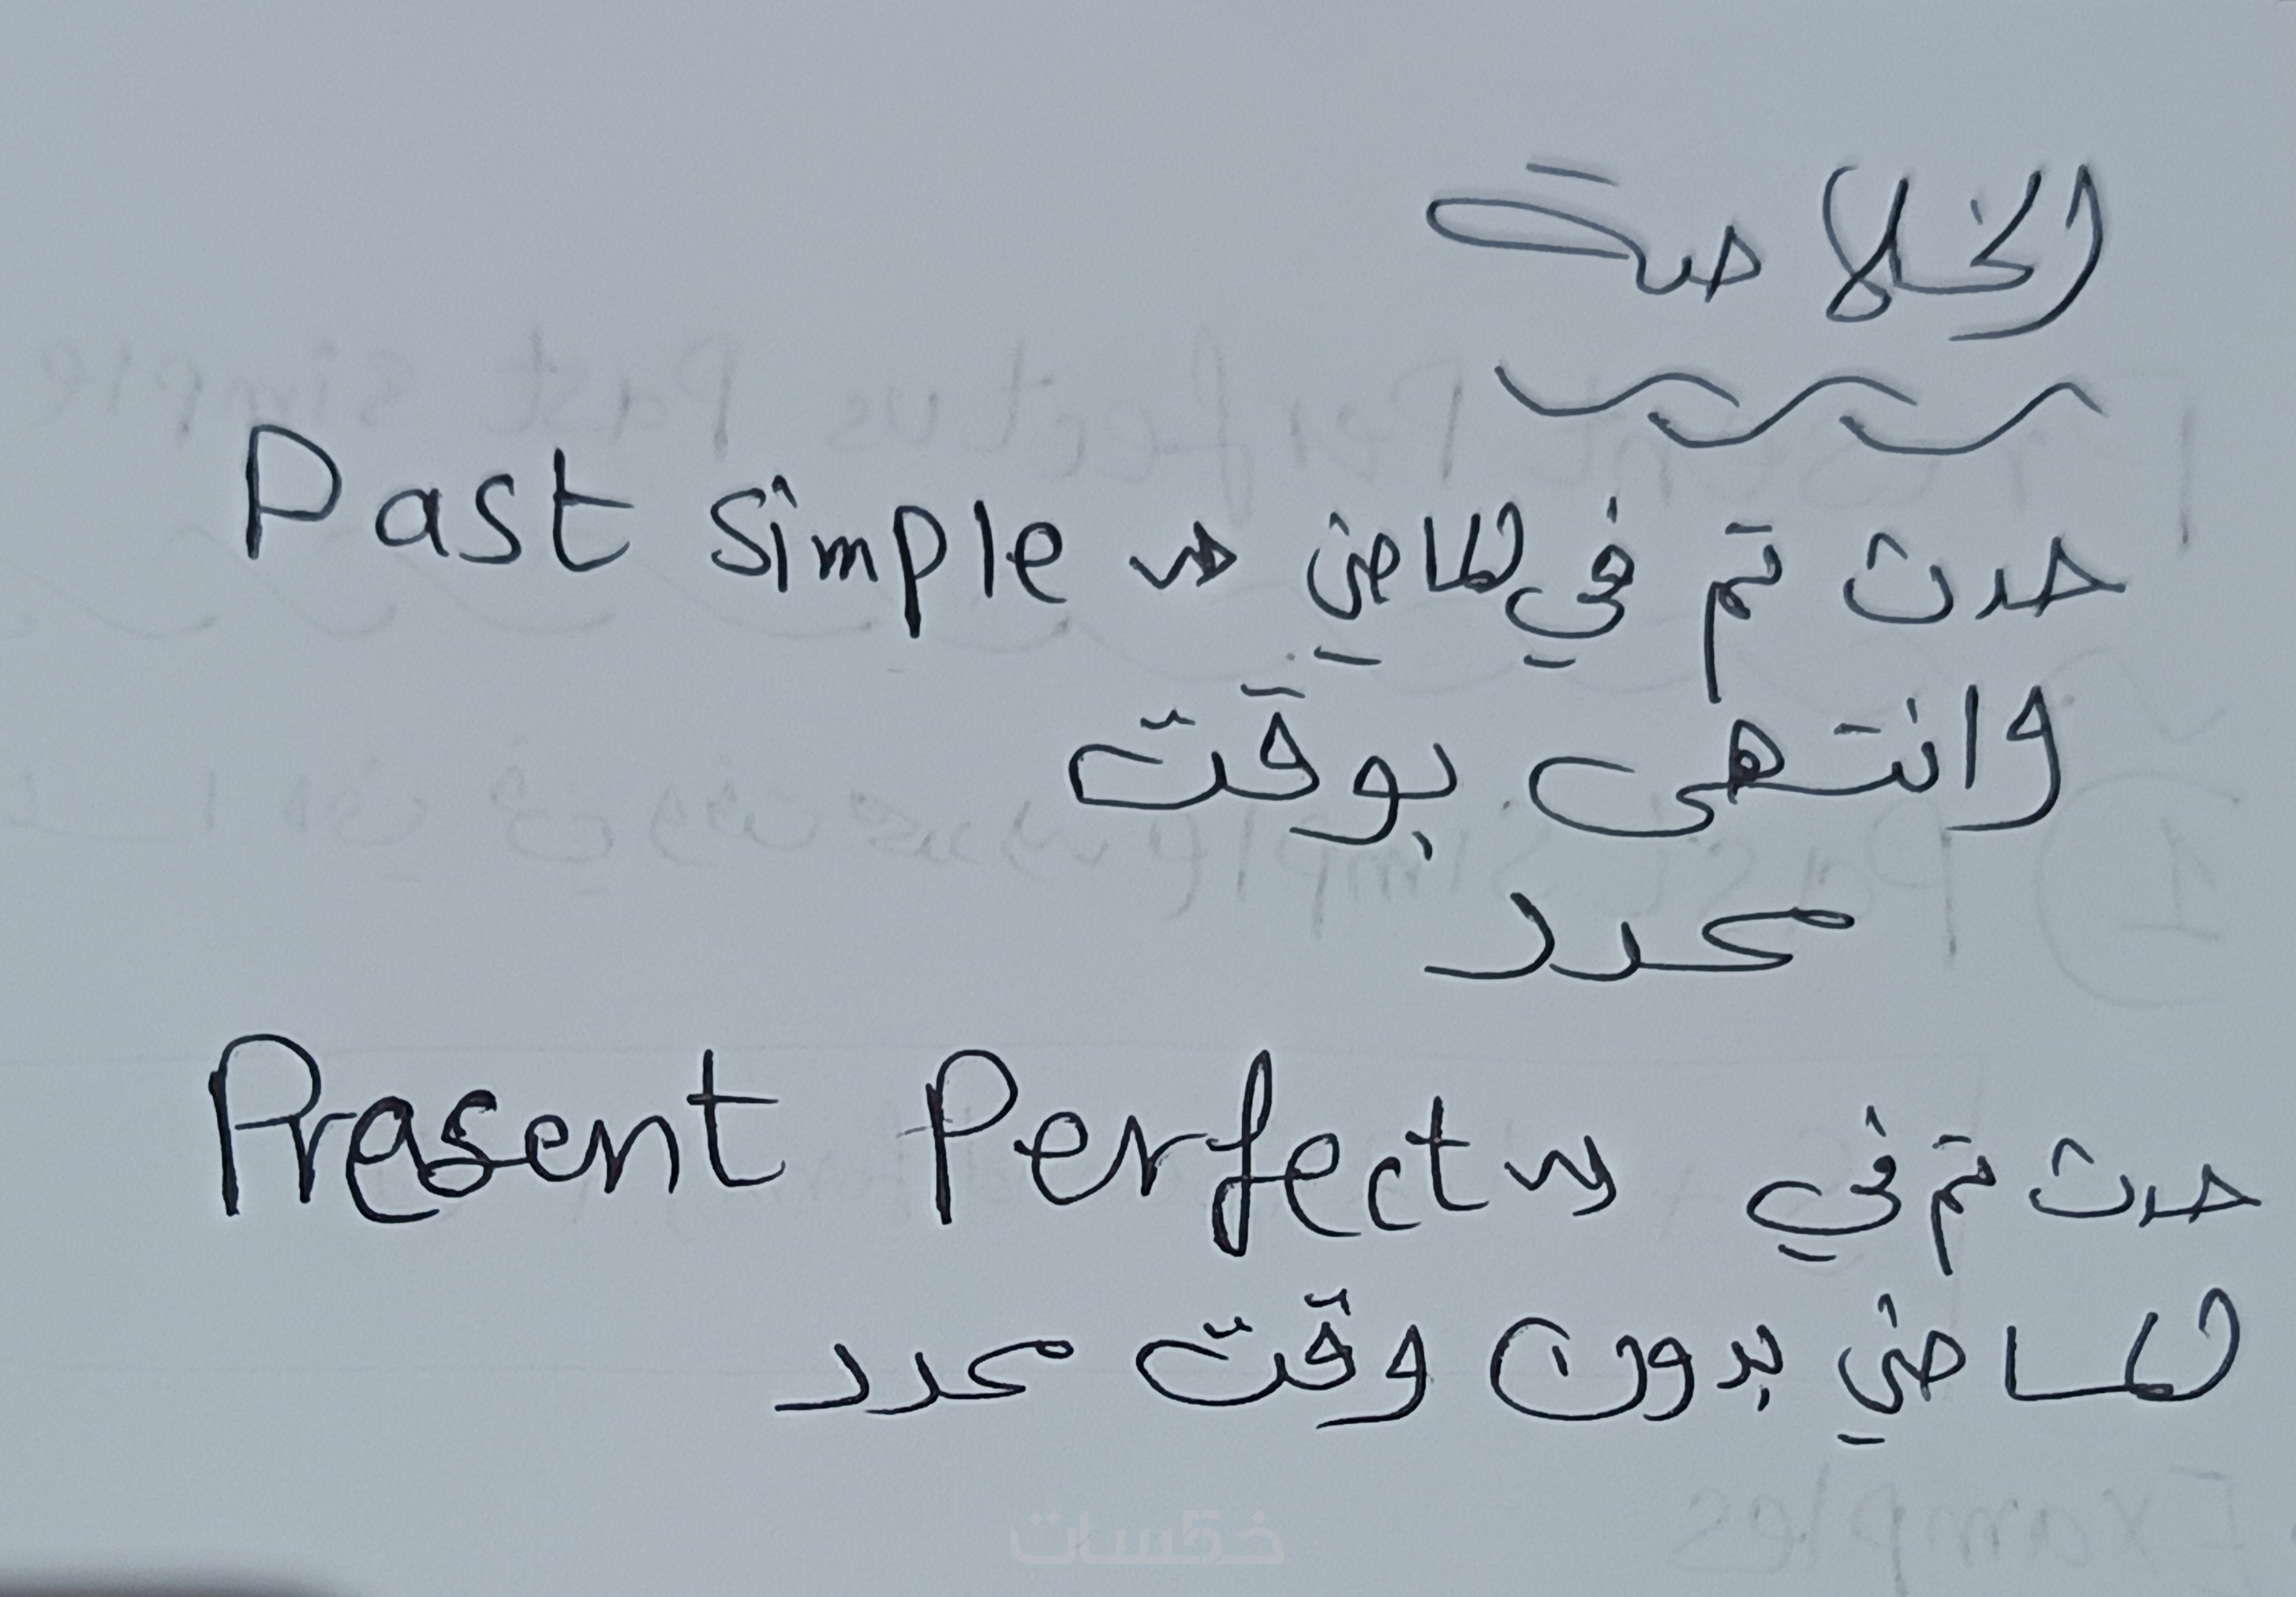 الخلاصة
Past simple → حدث تم في الماضي
وانتهى بوقت
محدد
Present Perfect → حدث تم في
الماضي بدون وقت محدد
خمسات